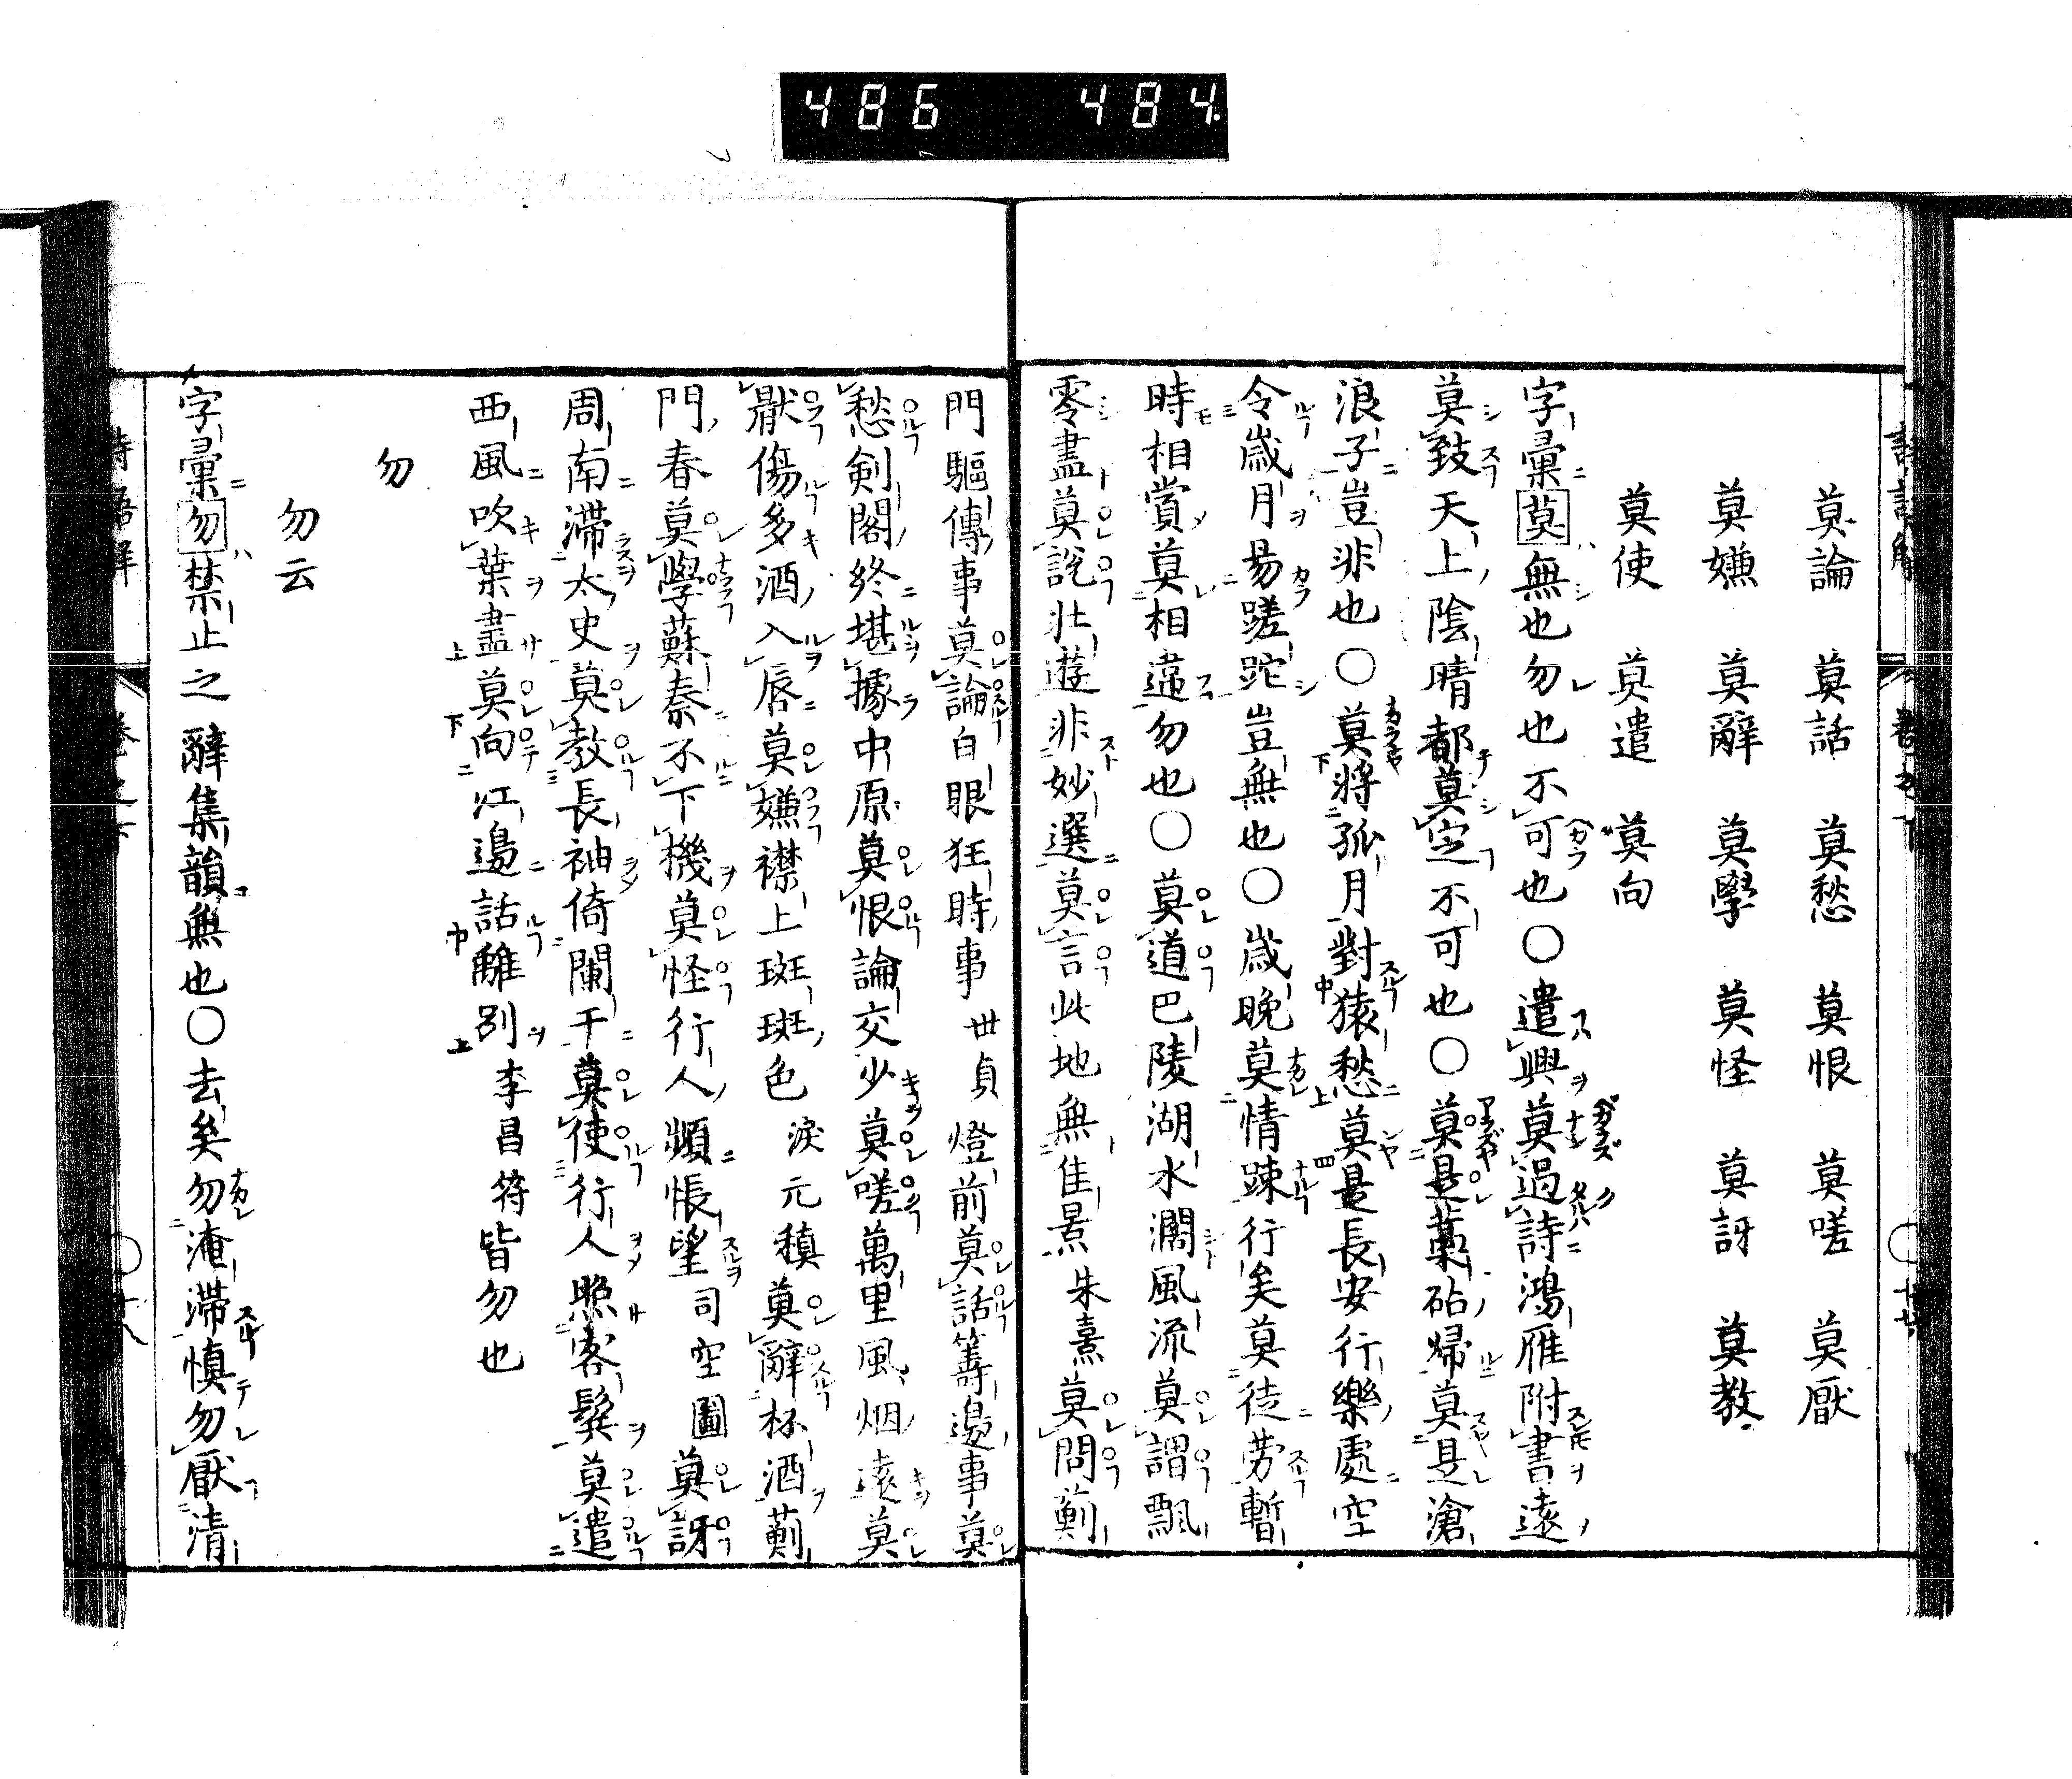 486 484.
莫論 莫話 莫愁 莫恨 莫嗟 莫厭
莫嫌 莫辭 莫學 莫怪 莫訝 莫教
莫使 莫遣 莫向
字彙莫無也勿也不可也〇遣興莫過詩鴻雁附書遠
莫致天上陰晴都莫定不可也〇莫是藁砧歸莫是滄
浪子豈非也〇莫將孤月對猿愁莫是長安行樂處空
令歳月易蹉跎豈無也〇歳晩莫情踈行矣莫徒勞暫
時相賞莫相違勿也〇莫道巴陵湖水濶風流莫謂飄
零盡莫説壯遊非妙選莫言此地無佳景朱熹莫問薊
門驅傳事莫論白眼狂時事世貞燈前莫話籌邊事莫
愁劍閣終堪據中原莫恨論交少莫嗟萬里風烟遠莫
厭傷多酒入唇莫嫌襟上斑斑色淚元稹莫辭杯酒薊
門春莫學蘇秦不下機莫怪行人頻悵望司空圖莫訝
周南滯太史莫教長袖倚闌干莫使行人照客鬂莫遣
西風吹葉盡莫向江邊話離別李昌符皆勿也
勿
勿云
字彙勿禁止之辭集韻無也〇去矣勿淹滯慎勿厭清